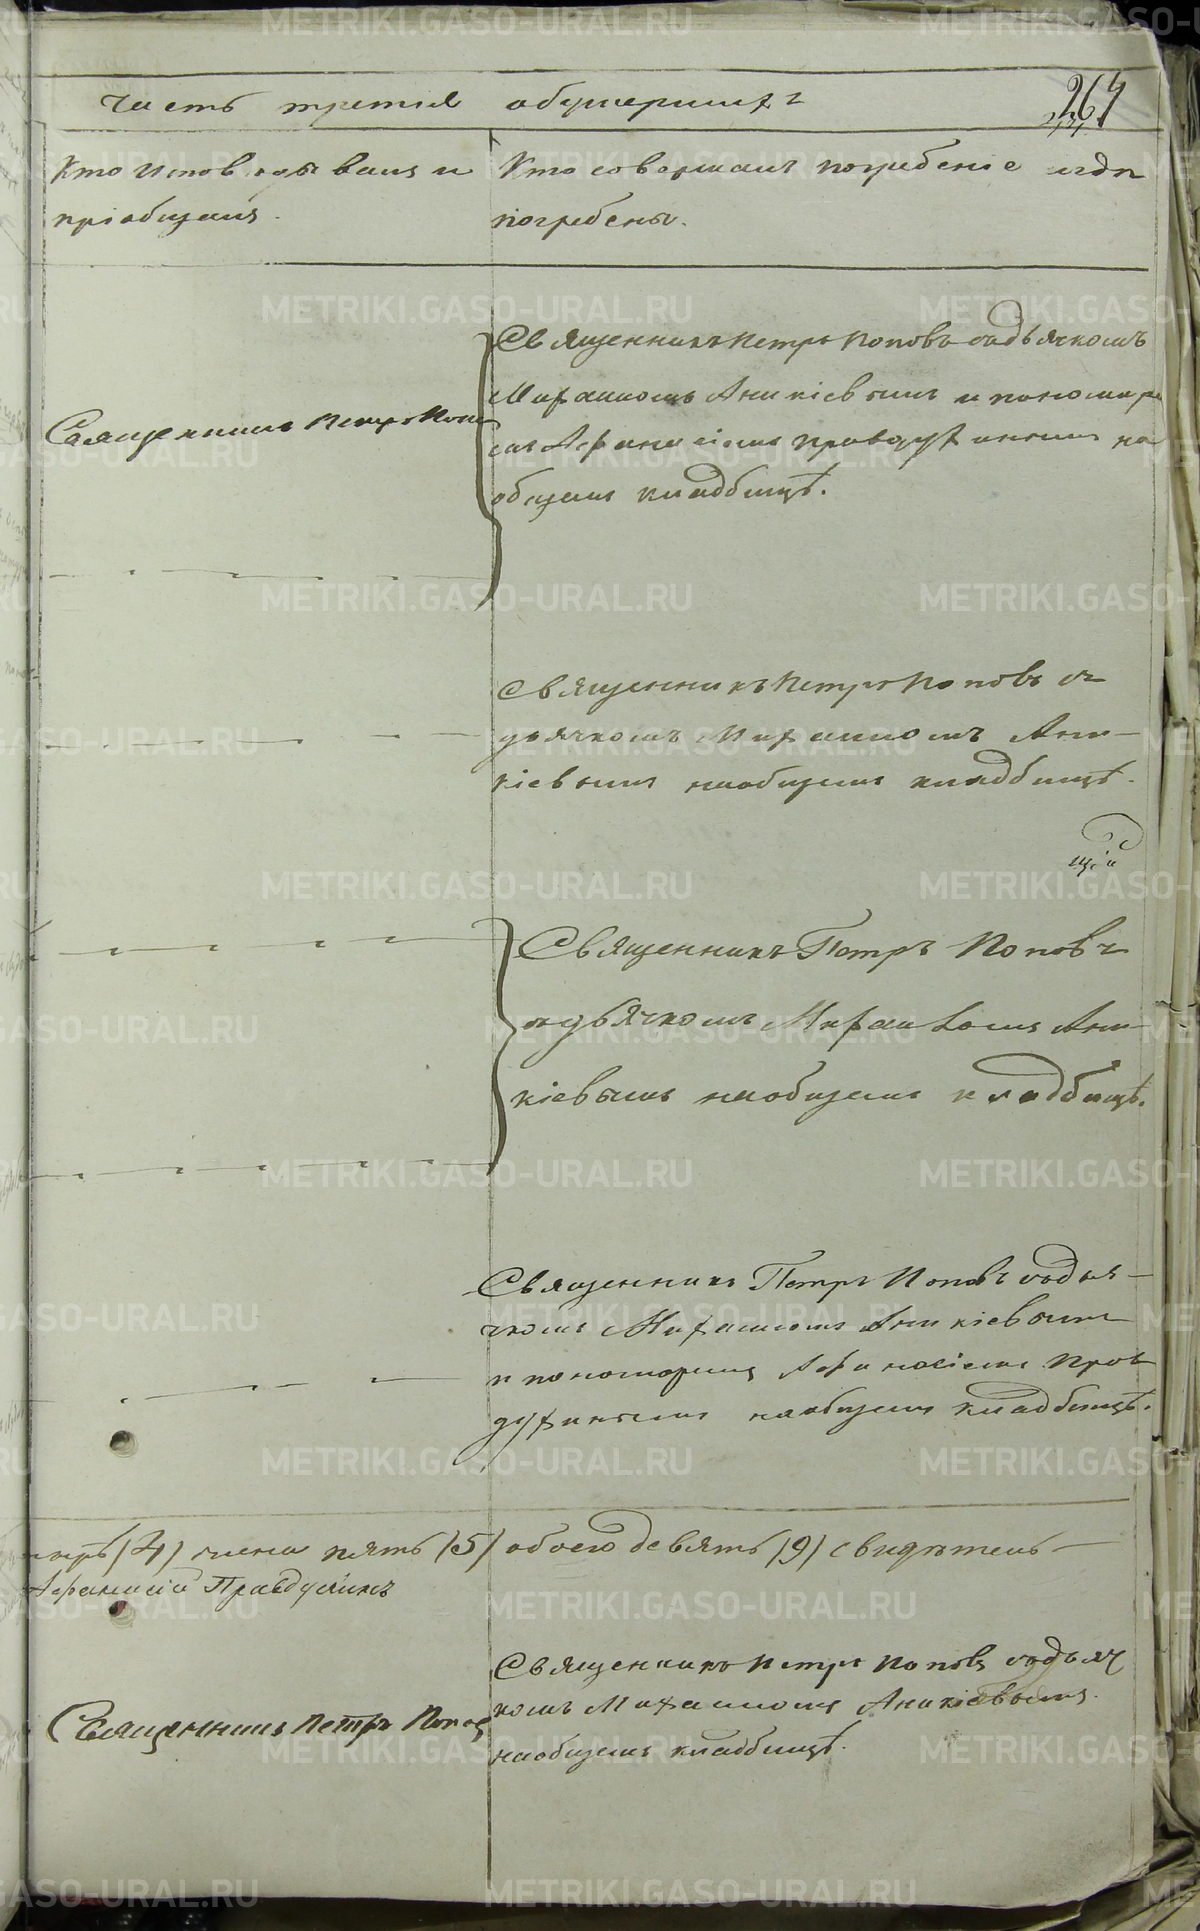 часть третія объумершихъ
264
Кто исповѣдывалъ и
пріобщалъ.
Кто совершалъ погребеніе и гдѣ
погребены.
Священникъ Петръ Попов
Священникъ Петръ Поповъ съдьячкомъ
Михаиломъ Аникіевымъ и пономаре
мъ Афанасіемъ Правдухинымъ на
общемъ кладбищѣ.
Священникъ Петръ Поповъ съ
дьячкомъ Михаиломъ Ани-
кіевымъ наобщемъ кладбищѣ.
щій
Священникъ Петръ Поповъ
съдьячкомъ Михаиломъ Ани-
кіевымъ наобщемъ кладбищѣ.
Священникъ Петръ Поповъ съдья-
чкомъ Михаиломъ Аникіевымъ
и пономаремъ Афанасіемъ Прав
духинымъ наобщемъ кладбищѣ.
(4) женска пять (5) обоего девять (9) свидѣтель-
Афанасій Правдухинъ
Священникъ Петръ Попов
Священникъ Петръ Поповъ съдьяч
комъ Михаиломъ Аникіевымъ
наобщемъ кладбищѣ.
METRIKI.GASO-URAL.RU